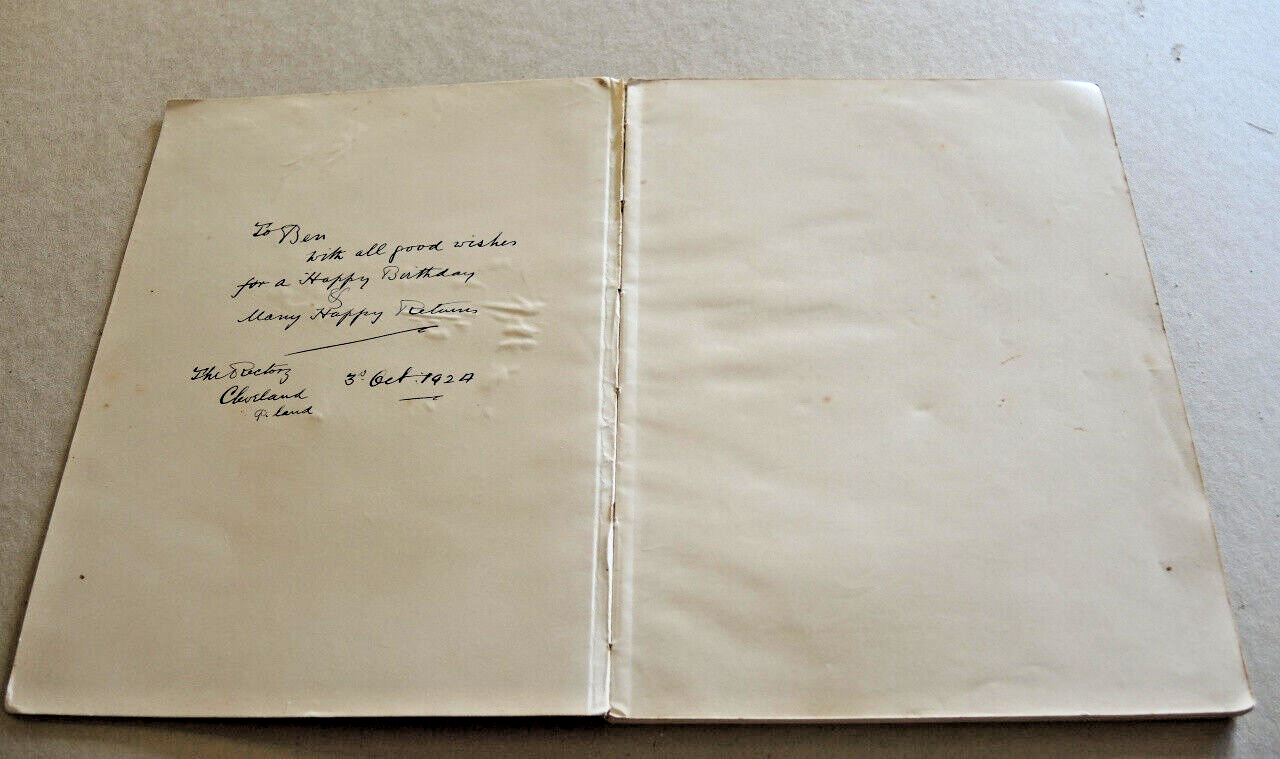 To Ben
with all good wishes
for a Happy Birthday
&
Many Happy Returns
The Rectory
Cleveland
Q. land
3ᵈ Oct. 1924